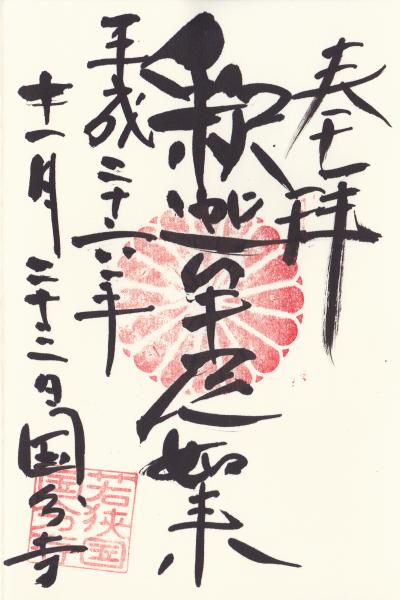 奉拝
釈迦牟尼如来
平成二十六年
十一月二十三日 国分寺
若狭国
国分寺